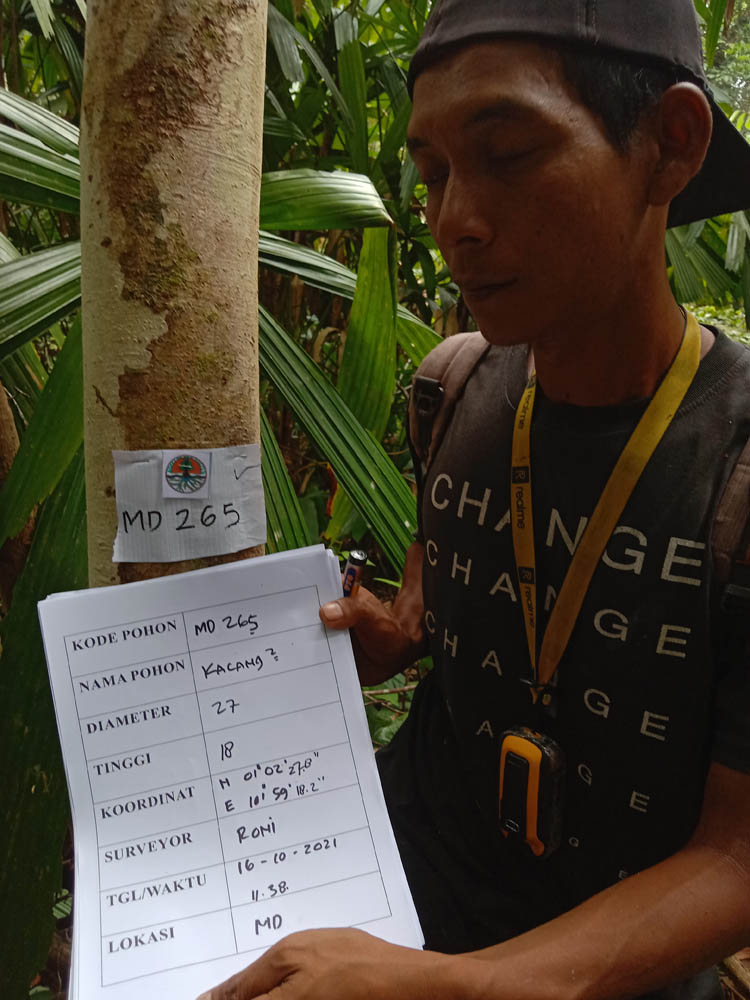 MD 265
KODE POHON MD 265
NAMA POHON KACANG 2
DIAMETER 27
TINGGI 18
KOORDINAT N 01° 02' 27.8"
E 101° 59' 18.2"
SURVEYOR RONI
TGL/WAKTU 16-10-2021
11.38.
LOKASI MD
realme
realme
CHANGE
CHANGE
CHANGE
A GE
GE
E
G